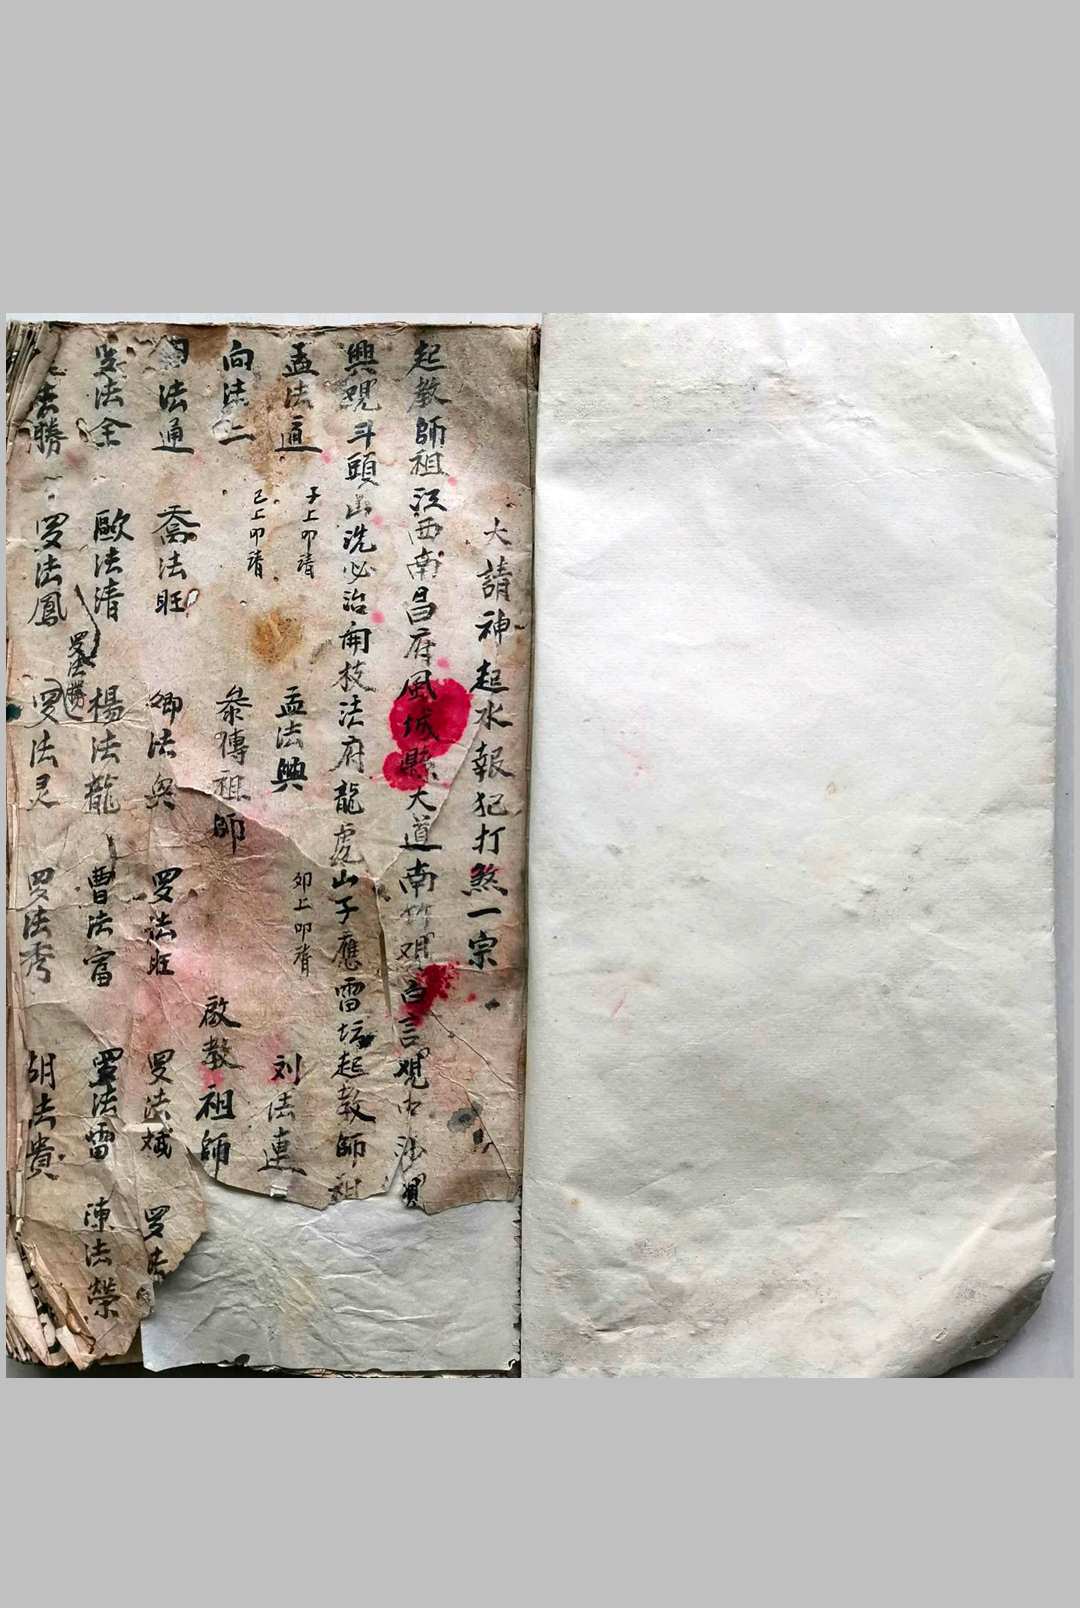 大請神起水報犯打煞一宗
起教師祖江西南昌府風城縣大道南竹观白言观中
興觀斗頭山洗必治開技法府龍虎山子應雷坛起教師祖
孟法道 子上叩請 孟法興 卯上叩請 刘法連
向法二 己上叩請 叅傳祖師 啟教祖師
法通 喬法旺 卿法興 罗法旺 罗法斌 罗法
罗法全 歐法清 楊法龍 曹法富 罗法雷 陳法榮
罗法勝
法勝 罗法鳳 罗法灵 罗法秀 胡法貴